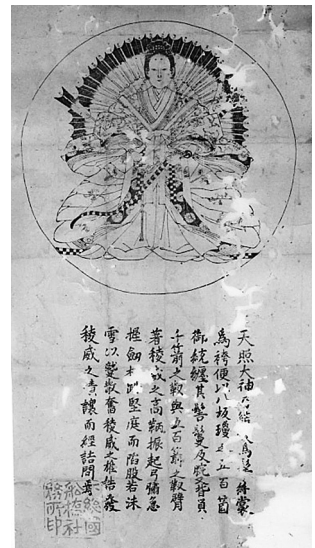 天照大神乃結爲髻縛裳
爲袴便以八坂瓊之五百箇
御統纏其髻鬘及腕背負
千箭之靫與五百箭之靫臂
著稜威之高鞆振起弓彇急
握劒柄蹈堅庭而陷股若沫
雪以蹴散奮稜威之雄誥發
稜威之嘖讓而經詰問焉